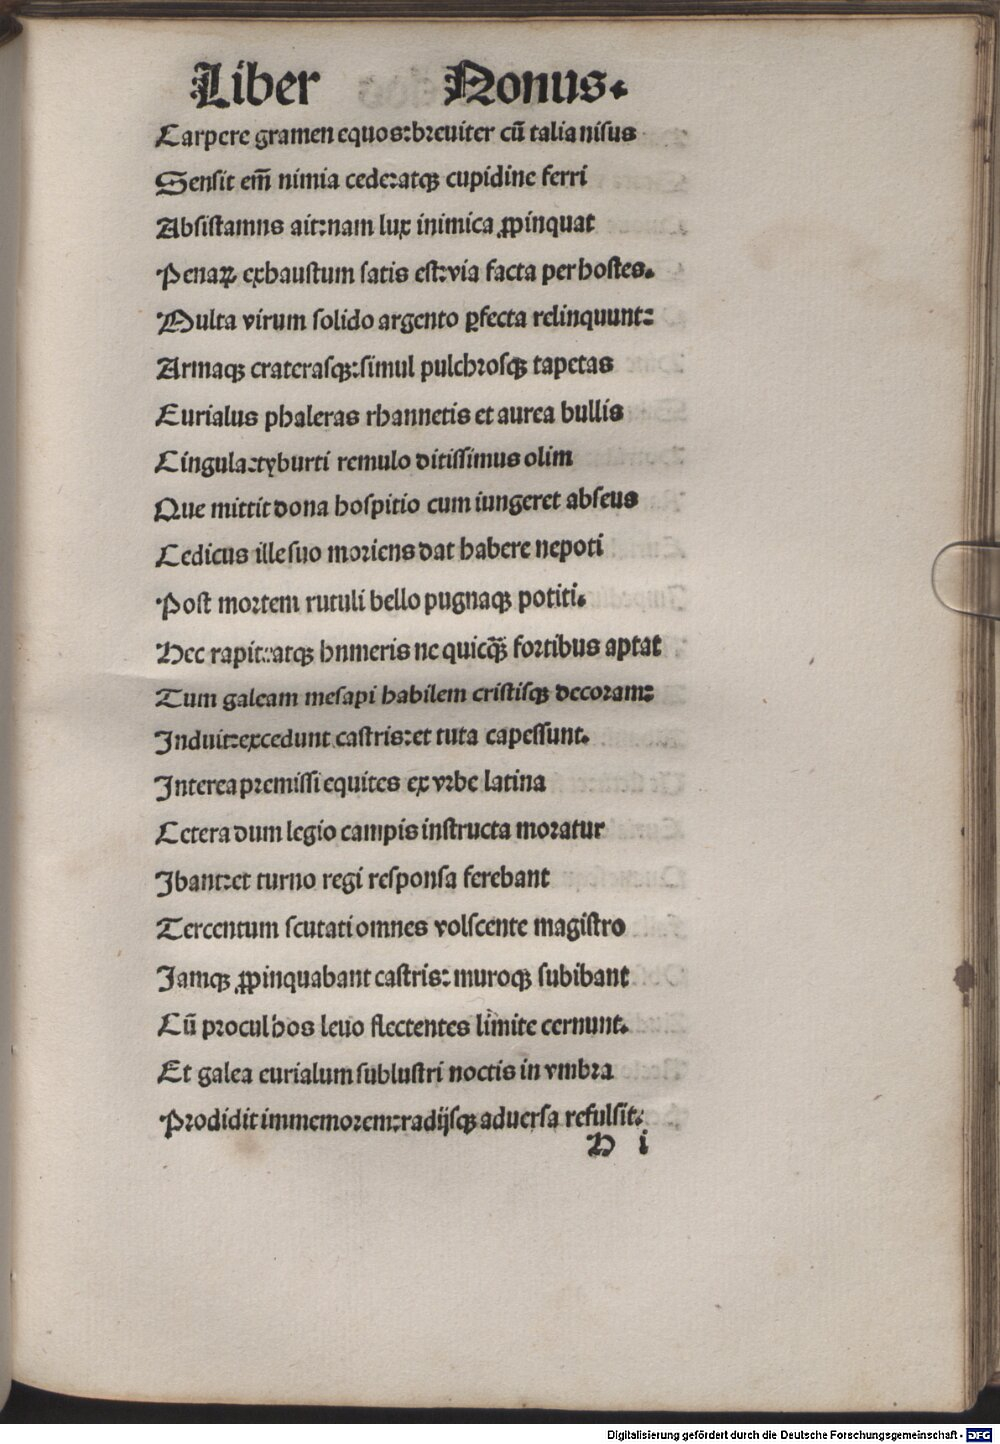 Liber Nonus.
Carpere gramen equos:breuiter cū talia nisus
Sensit em̄ nimia cede:atqꝫ cupidine ferri
Absistamns ait:nam lux inimica ꝓpinquat
Penaꝝ exhaustum satis est:via facta per hostes.
Multa virum solido argento ꝑfecta relinquunt:
Armaqꝫ craterasqꝫ:simul pulchrosqꝫ tapetas
Eurialus phaleras rhannetis et aurea bullis
Cingula:tyburti remulo ditissimus olim
Que mittit dona hospitio cum iungeret abseus
Cedicus ille suo moriens dat habere nepoti
Post mortem rutuli bello pugnaqꝫ potiti.
Hec rapit:atqꝫ hnmeris ne quicq̄ꝫ fortibus aptat
Tum galeam mesapi habilem cristisqꝫ decoram:
Induit:excedunt castris:et tuta capessunt.
Interea premissi equites ex vrbe latina
Cetera dum legio campis instructa moratur
Ibant:et turno regi responsa ferebant
Tercentum scutati omnes volscente magistro
Jamqꝫ ꝓpinquabant castris:muroqꝫ subibant
Cū procul hos leuo flectentes limite cernunt.
Et galea eurialum sublustri noctis in vmbra
Prodidit immemorem:radijsqꝫ aduersa refulsit:
H i
Digitalisierung gefördert durch die Deutsche Forschungsgemeinschaft - DFG